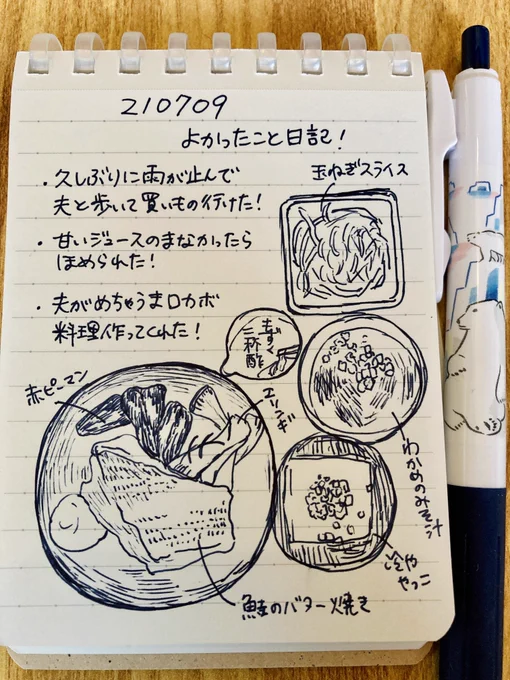 210709
よかったこと日記！
・久しぶりに雨が止んで
夫と歩いて買いもの行けた！
・甘いジュースのまなかったら
ほめられた！
・夫がめちゃうまロカボ
料理作ってくれた！
玉ねぎスライス
もずく
三杯酢
赤ピーマン
エリンギ
わかめのみそ汁
冷や
やっこ
鮭のバター焼き